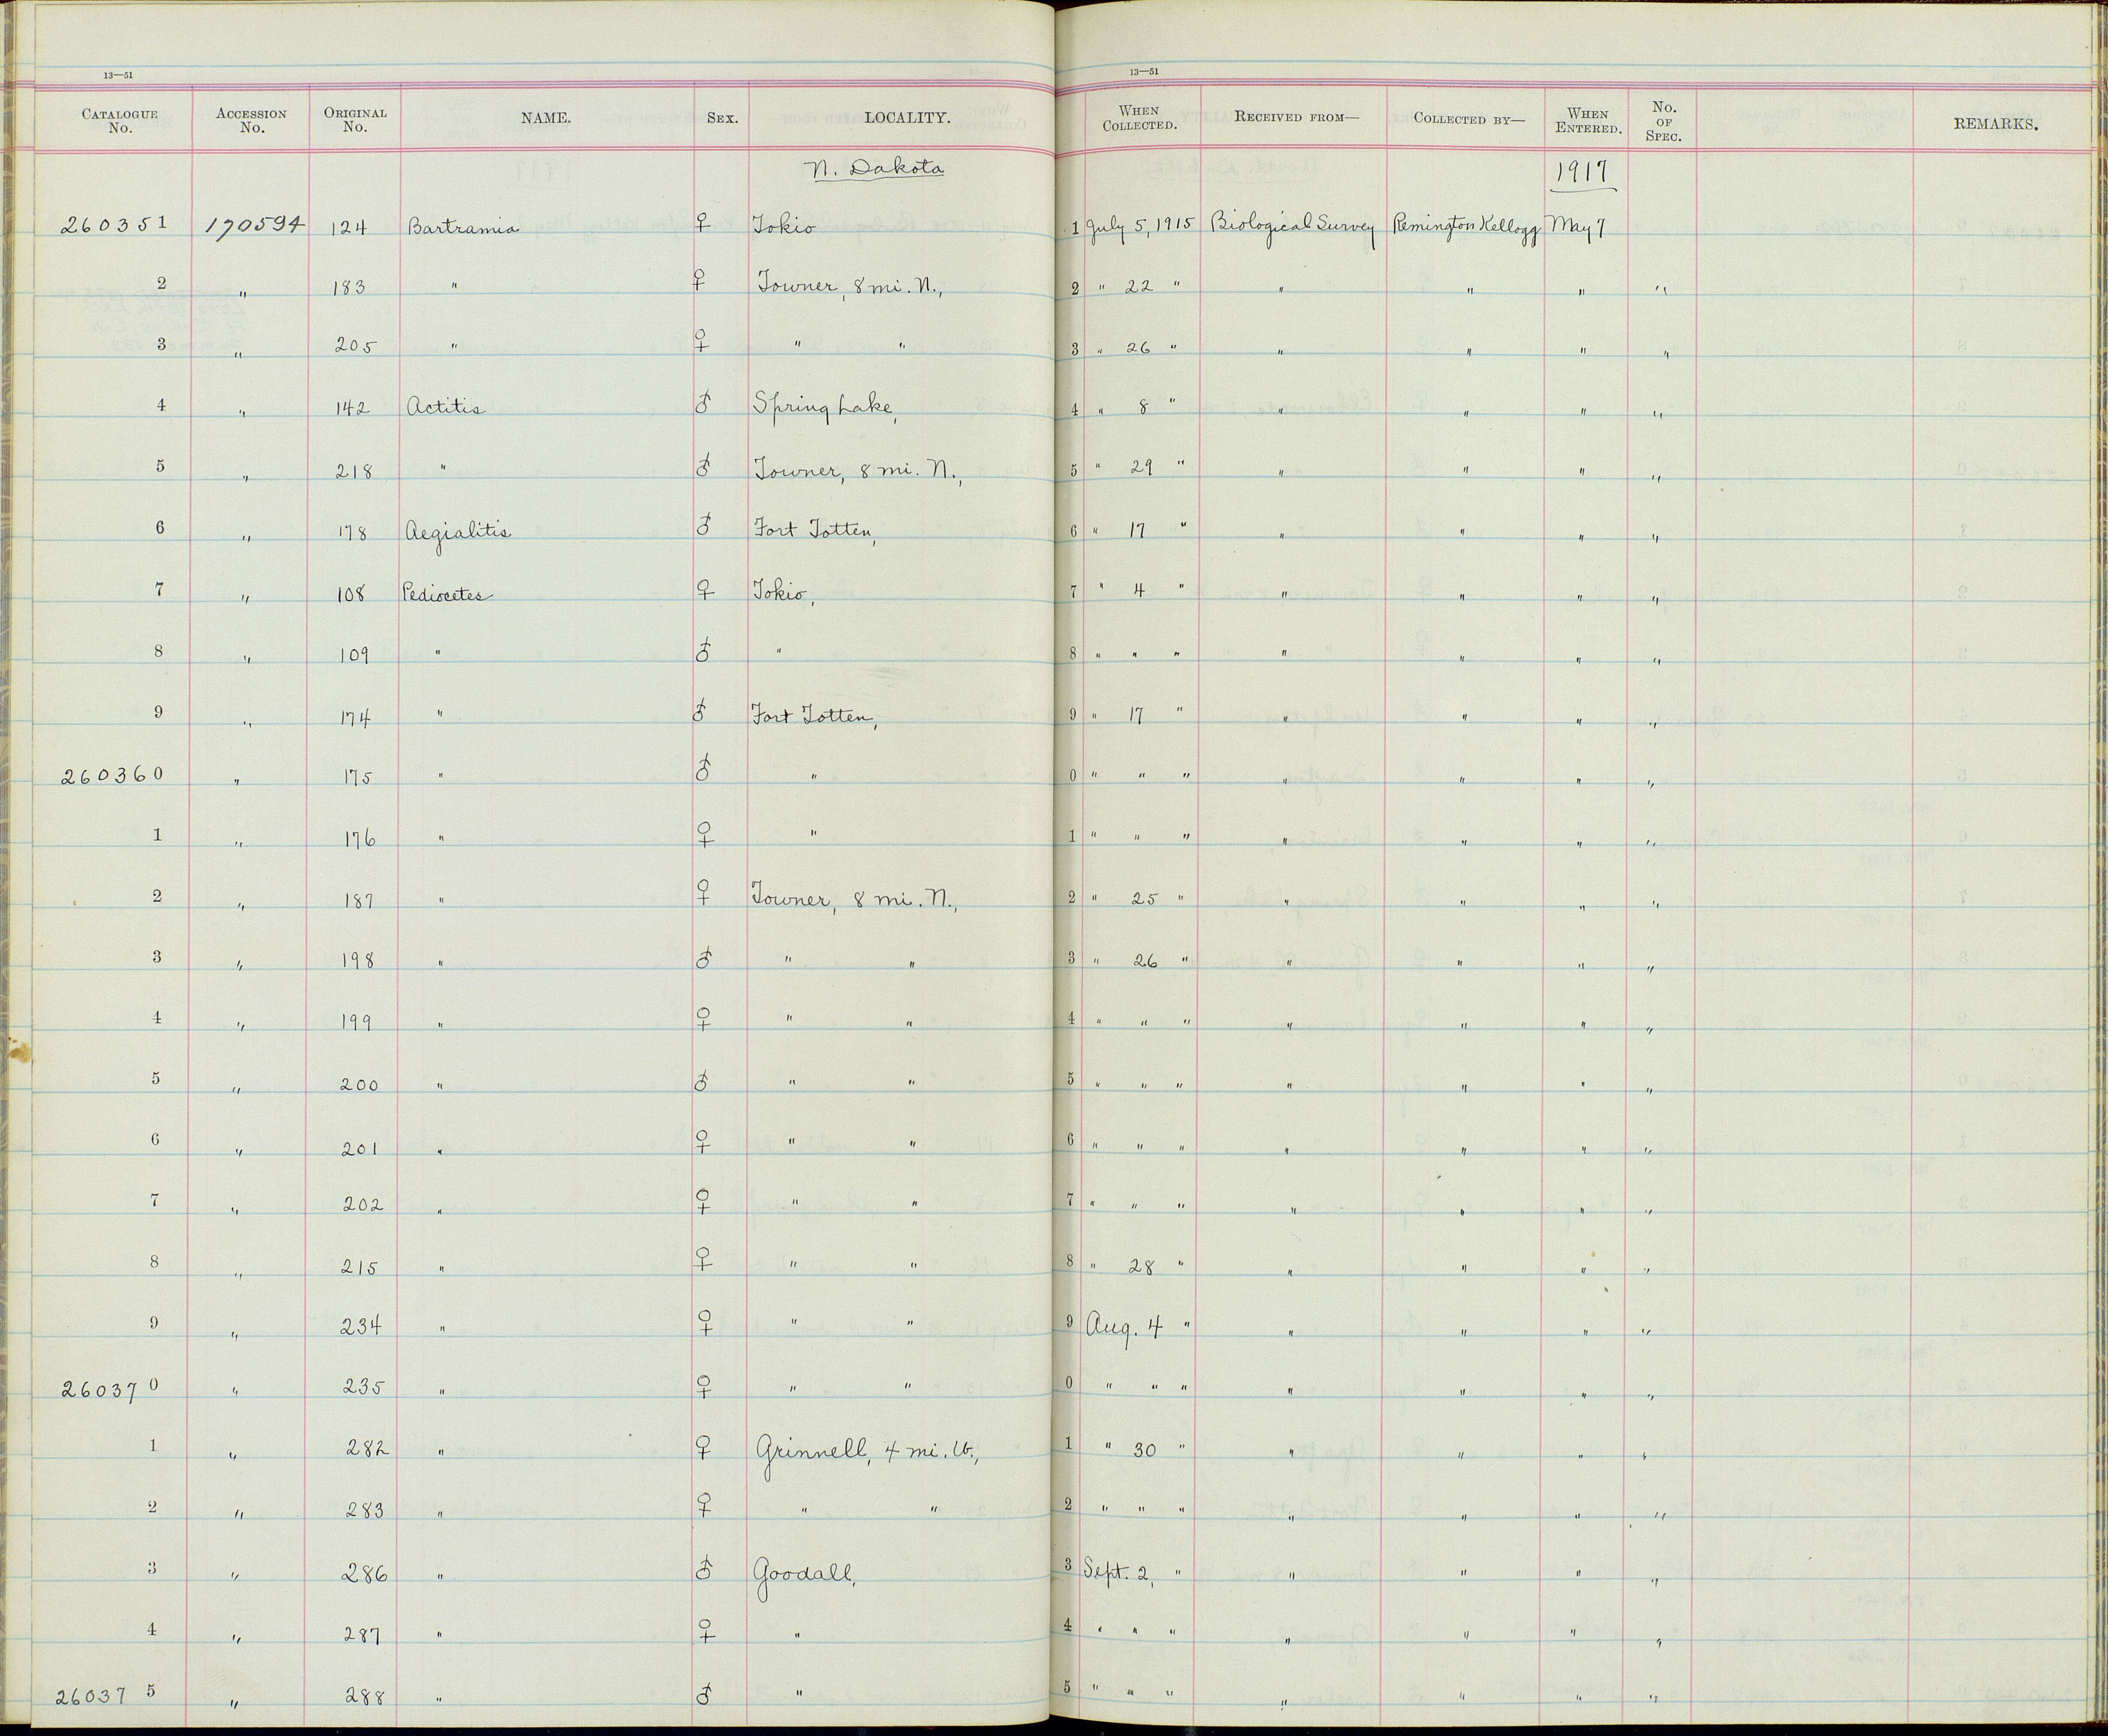 13—51 13—51
CATALOGUE No. ACCESSION No. ORIGINAL No. NAME. SEX. LOCALITY. WHEN COLLECTED. RECEIVED FROM— COLLECTED BY— WHEN ENTERED. No. OF SPEC. REMARKS.
N. Dakota 1917
260351 170594 124 Bartramia ♀ Tokio 1 July 5, 1915 Biological Survey Remington Kellogg May 7
2 " 183 " ♀ Towner, 8 mi. N., 2 " 22 " " " " "
3 " 205 " ♀ " " 3 " 26 " " " " "
4 " 142 Actitis ♂ Spring Lake, 4 " 8 " " " " "
5 " 218 " ♂ Towner, 8 mi. N., 5 " 29 " " " " "
6 " 178 Aegialitis ♂ Fort Totten, 6 " 17 " " " " "
7 " 108 Pediocetes ♀ Tokio, 7 " 4 " " " " "
8 " 109 " ♂ " 8 " " " " " " "
9 " 174 " ♂ Fort Totten, 9 " 17 " " " " "
260360 " 175 " ♂ " 0 " " " " " " "
1 " 176 " ♀ " 1 " " " " " " "
2 " 187 " ♀ Towner, 8 mi. N., 2 " 25 " " " " "
3 " 198 " ♂ " " 3 " 26 " " " " "
4 " 199 " ♀ " " 4 " " " " " " "
5 " 200 " ♂ " " 5 " " " " " " "
6 " 201 " ♀ " " 6 " " " " " " "
7 " 202 " ♀ " " 7 " " " " " " "
8 " 215 " ♀ " " 8 " 28 " " " " "
9 " 234 " ♀ " " 9 Aug. 4 " " " " "
260370 " 235 " ♀ " " 0 " " " " " " "
1 " 282 " ♀ Grinnell, 4 mi. W., 1 " 30 " " " " "
2 " 283 " ♀ " " 2 " " " " " " "
3 " 286 " ♂ Goodall, 3 Sept. 2, " " " " "
4 " 287 " ♀ " 4 " " " " " " "
260375 " 288 " ♂ " 5 " " " " " " "